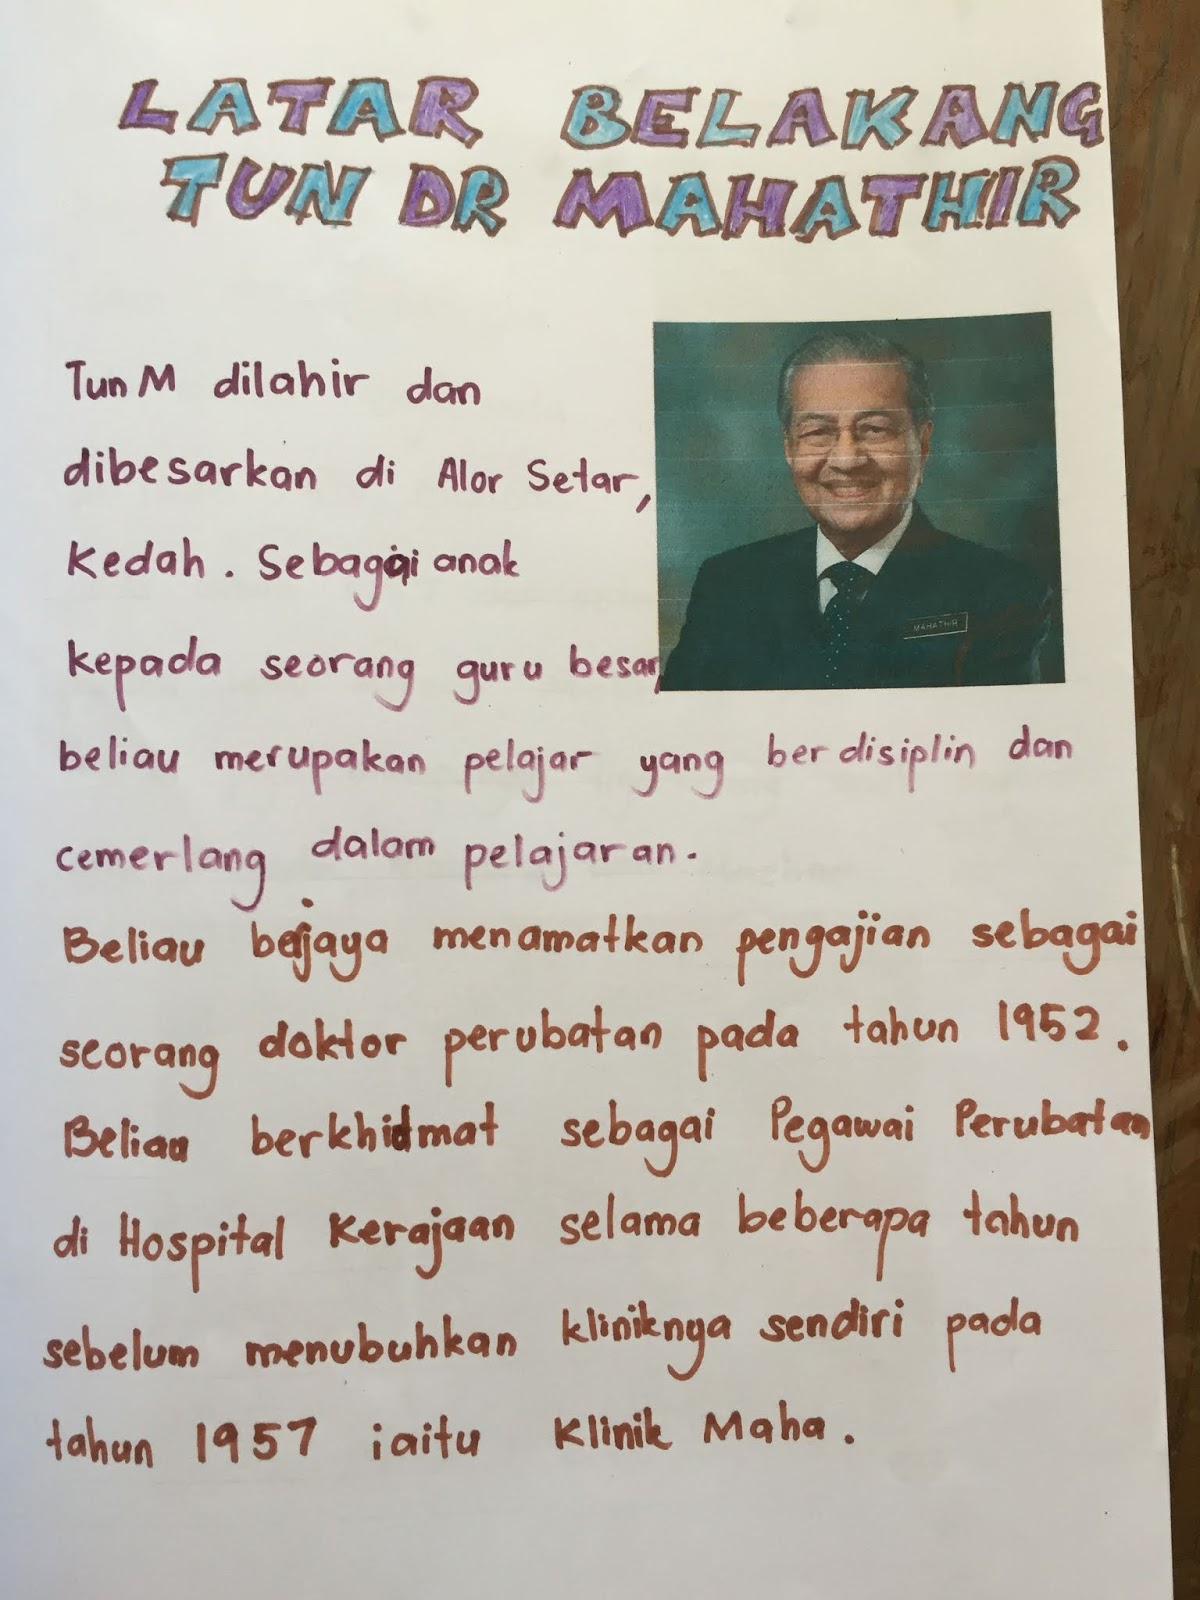 LATAR BELAKANG
TUN DR MAHATHIR
Tun M dilahir dan
dibesarkan di Alor Setar,
Kedah. Sebagai anak
kepada seorang guru besar,
MAHATHIR
beliau merupakan pelajar yang berdisiplin dan
cemerlang dalam pelajaran.
Beliau bejaya menamatkan pengajian sebagai
seorang doktor perubatan pada tahun 1952.
Beliau berkhidmat sebagai Pegawai Perubatan
di Hospital Kerajaan selama beberapa tahun
sebelum menubuhkan kliniknya sendiri pada
tahun 1957 iaitu Klinik Maha.